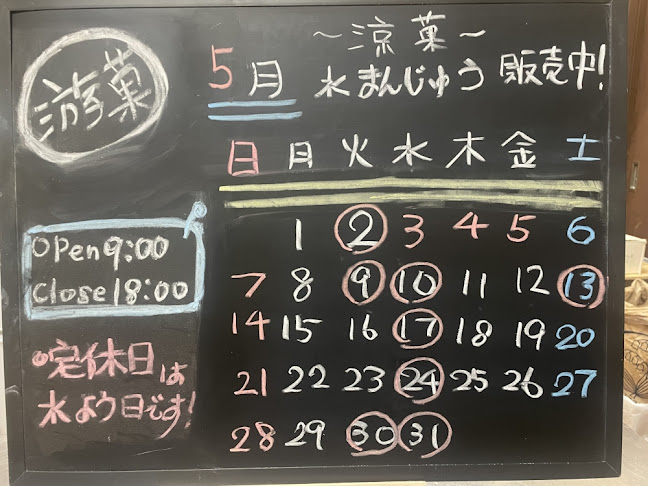 游菓
5月
～涼菓～
水まんじゅう 販売中!
日 月 火 水 木 金 土
1 2 3 4 5 6
7 8 9 10 11 12 13
14 15 16 17 18 19 20
21 22 23 24 25 26 27
28 29 30 31
OPen 9:00
Close 18:00
定休日は
水よう日です!